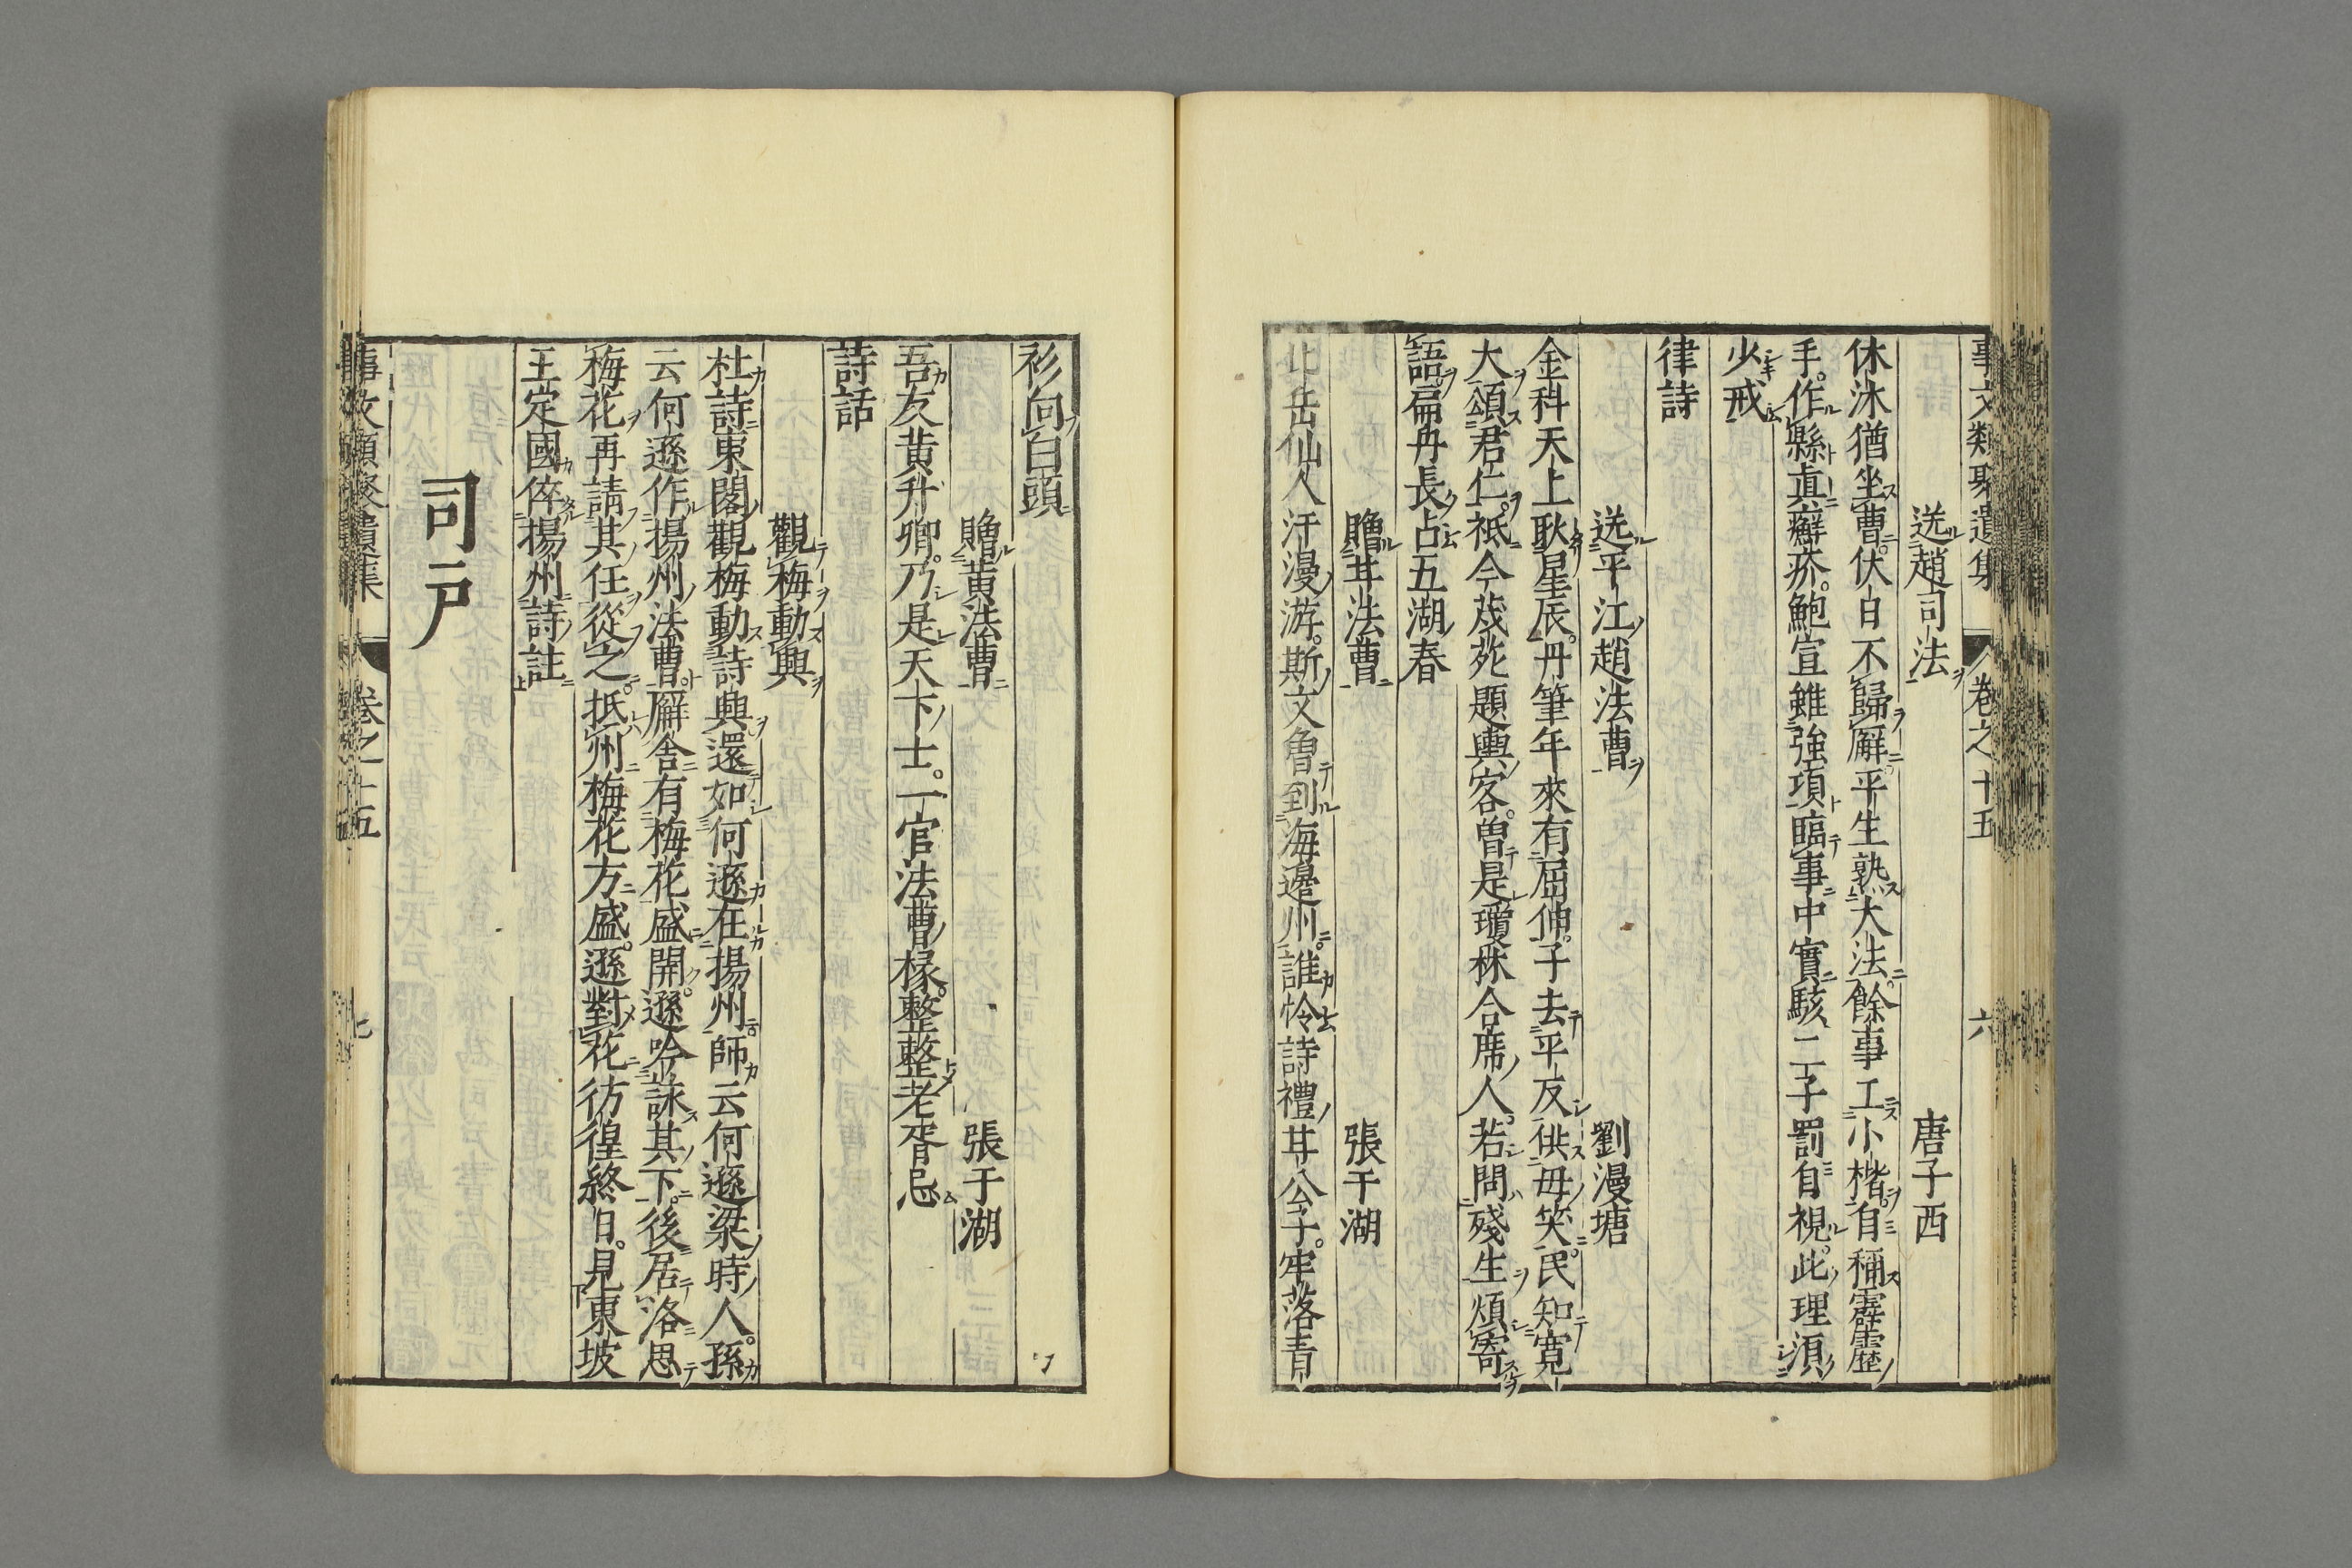 事文類聚遺集 卷之十五 六
送趙司法 唐子西
休沐猶坐曹伏白不歸廨平生熟大法餘事工小楷自稱霹靂
手作縣真癬疥鮑宣雖強項臨事中實駭二子罰自視此理須
少戒
律詩
送平江趙法曹 劉漫塘
金科天上耿星辰丹筆年來有屈伸子去平反供母笑民知寬
大頌君仁祗今茂苑題輿客曾是瓊林合席人若問殘生煩寄
語扁舟長占五湖春
贈甘法曹 張于湖
北岳仙人汗漫游斯文魯到海邊州誰怜詩禮甘公子牢落青
衫向白頭
贈黄法曹 張于湖
吾友黄升卿乃是天下士一官法曹椽整整老胥忌
詩話
觀梅動興
杜詩東閣觀梅動詩興還如何遜在揚州師云何遜梁時人孫
云何遜作揚州法曹廨舍有梅花盛開遜吟詠其下後居洛思
梅花再請其任從之抵州梅花方盛遜對花彷徨終日見東坡
王定國倅揚州詩註
司户
事文類聚遺集 卷之十五 七